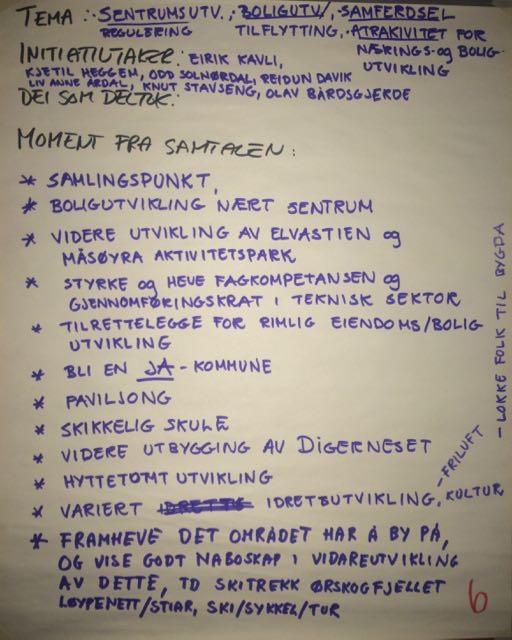 TEMA: SENTRUMSUTV., BOLIGUTV, SAMFERDSEL
REGULERING TILFLYTTING, ATRAKIVITET FOR
NÆRINGS- og BOLIG-
UTVIKLING
INITIATIVTAKER: EIRIK KAVLI,
KJETIL HEGGEM, ODD SOLNØRDAL, REIDUN DAVIK
LIV ANNE ÅRDAL, KNUT STAVSENG, OLAV BÅRDSGJERDE
DEI SOM DELTOK:
MOMENT FRA SAMTALEN:
* SAMLINGSPUNKT,
* BOLIGUTVIKLING NÆRT SENTRUM
* VIDERE UTVIKLING AV ELVASTIEN og
MÅSØYRA AKTIVITETSPARK
* STYRKE og HEVE FAGKOMPETANSEN og
GJENNOMFØRINGSKRAT I TEKNISK SEKTOR
* TILRETTELEGGE FOR RIMLIG EIENDOMS/BOLIG
UTVIKLING
* BLI EN JA-KOMMUNE
* PAVILJONG
* SKIKKELIG SKULE
* VIDERE UTBYGGING AV DIGERNESET
* HYTTETOMT UTVIKLING
* VARIERT IDRETTS IDRETSUTVIKLING, KULTUR
- FRILUFT
- LOKKE FOLK TIL BYGDA
* FRAMHEVE DET OMRÅDET HAR Å BY PÅ,
OG VISE GODT NABOSKAP I VIDAREUTVIKLING
AV DETTE, TD SKITREKK ØRSKOGFJELLET
LØYPENETT/STIAR, SKI/SYKKEL/TUR
6